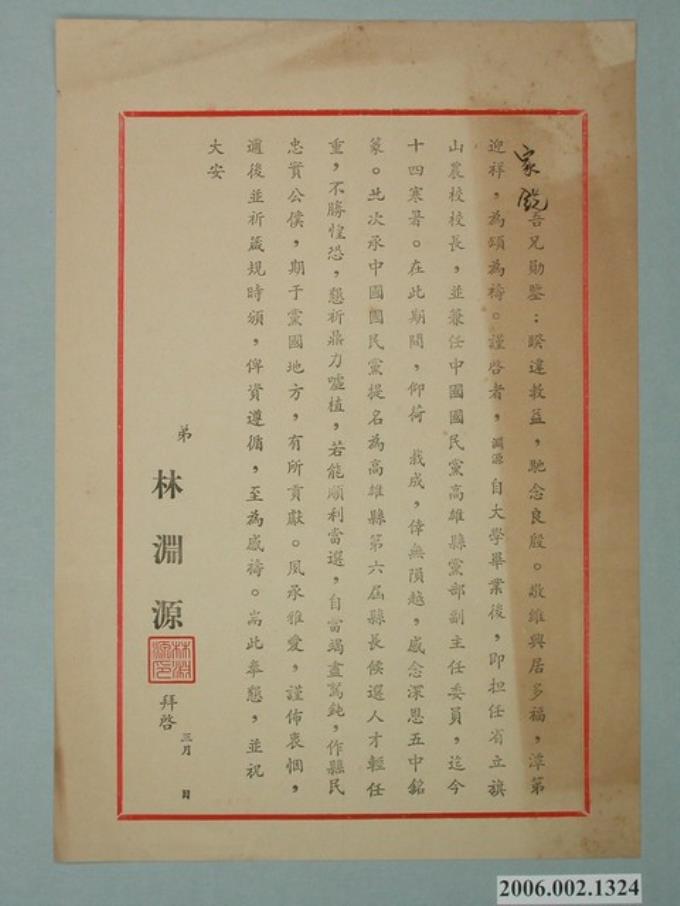 家
吾兄勛鑒：睽違教益，馳念良殷。敬維興居多福，潭第
迎祥，為頌為禱。謹啓者，淵源自大學畢業後，即担任省立旗
山農校校長，並兼任中國國民黨高雄縣黨部副主任委員，迄今
十四寒暑。在此期間，仰荷　栽成，倖無隕越，感念深恩五中銘
篆。此次承中國國民黨提名為高雄縣第六屆縣長候選人才輕任
重，不勝惶恐，懇祈鼎力噓植，若能順利當選，自當竭盡駑鈍，作縣民
忠實公僕，期于黨國地方，有所貢獻。夙承雅愛，謹佈衷悃，
邇後並祈箴規時頒，俾資遵循，至為感禱。耑此奉懇，並祝
大安
弟 林淵源 拜啓 三月　日
林淵源印
2006.002.1324